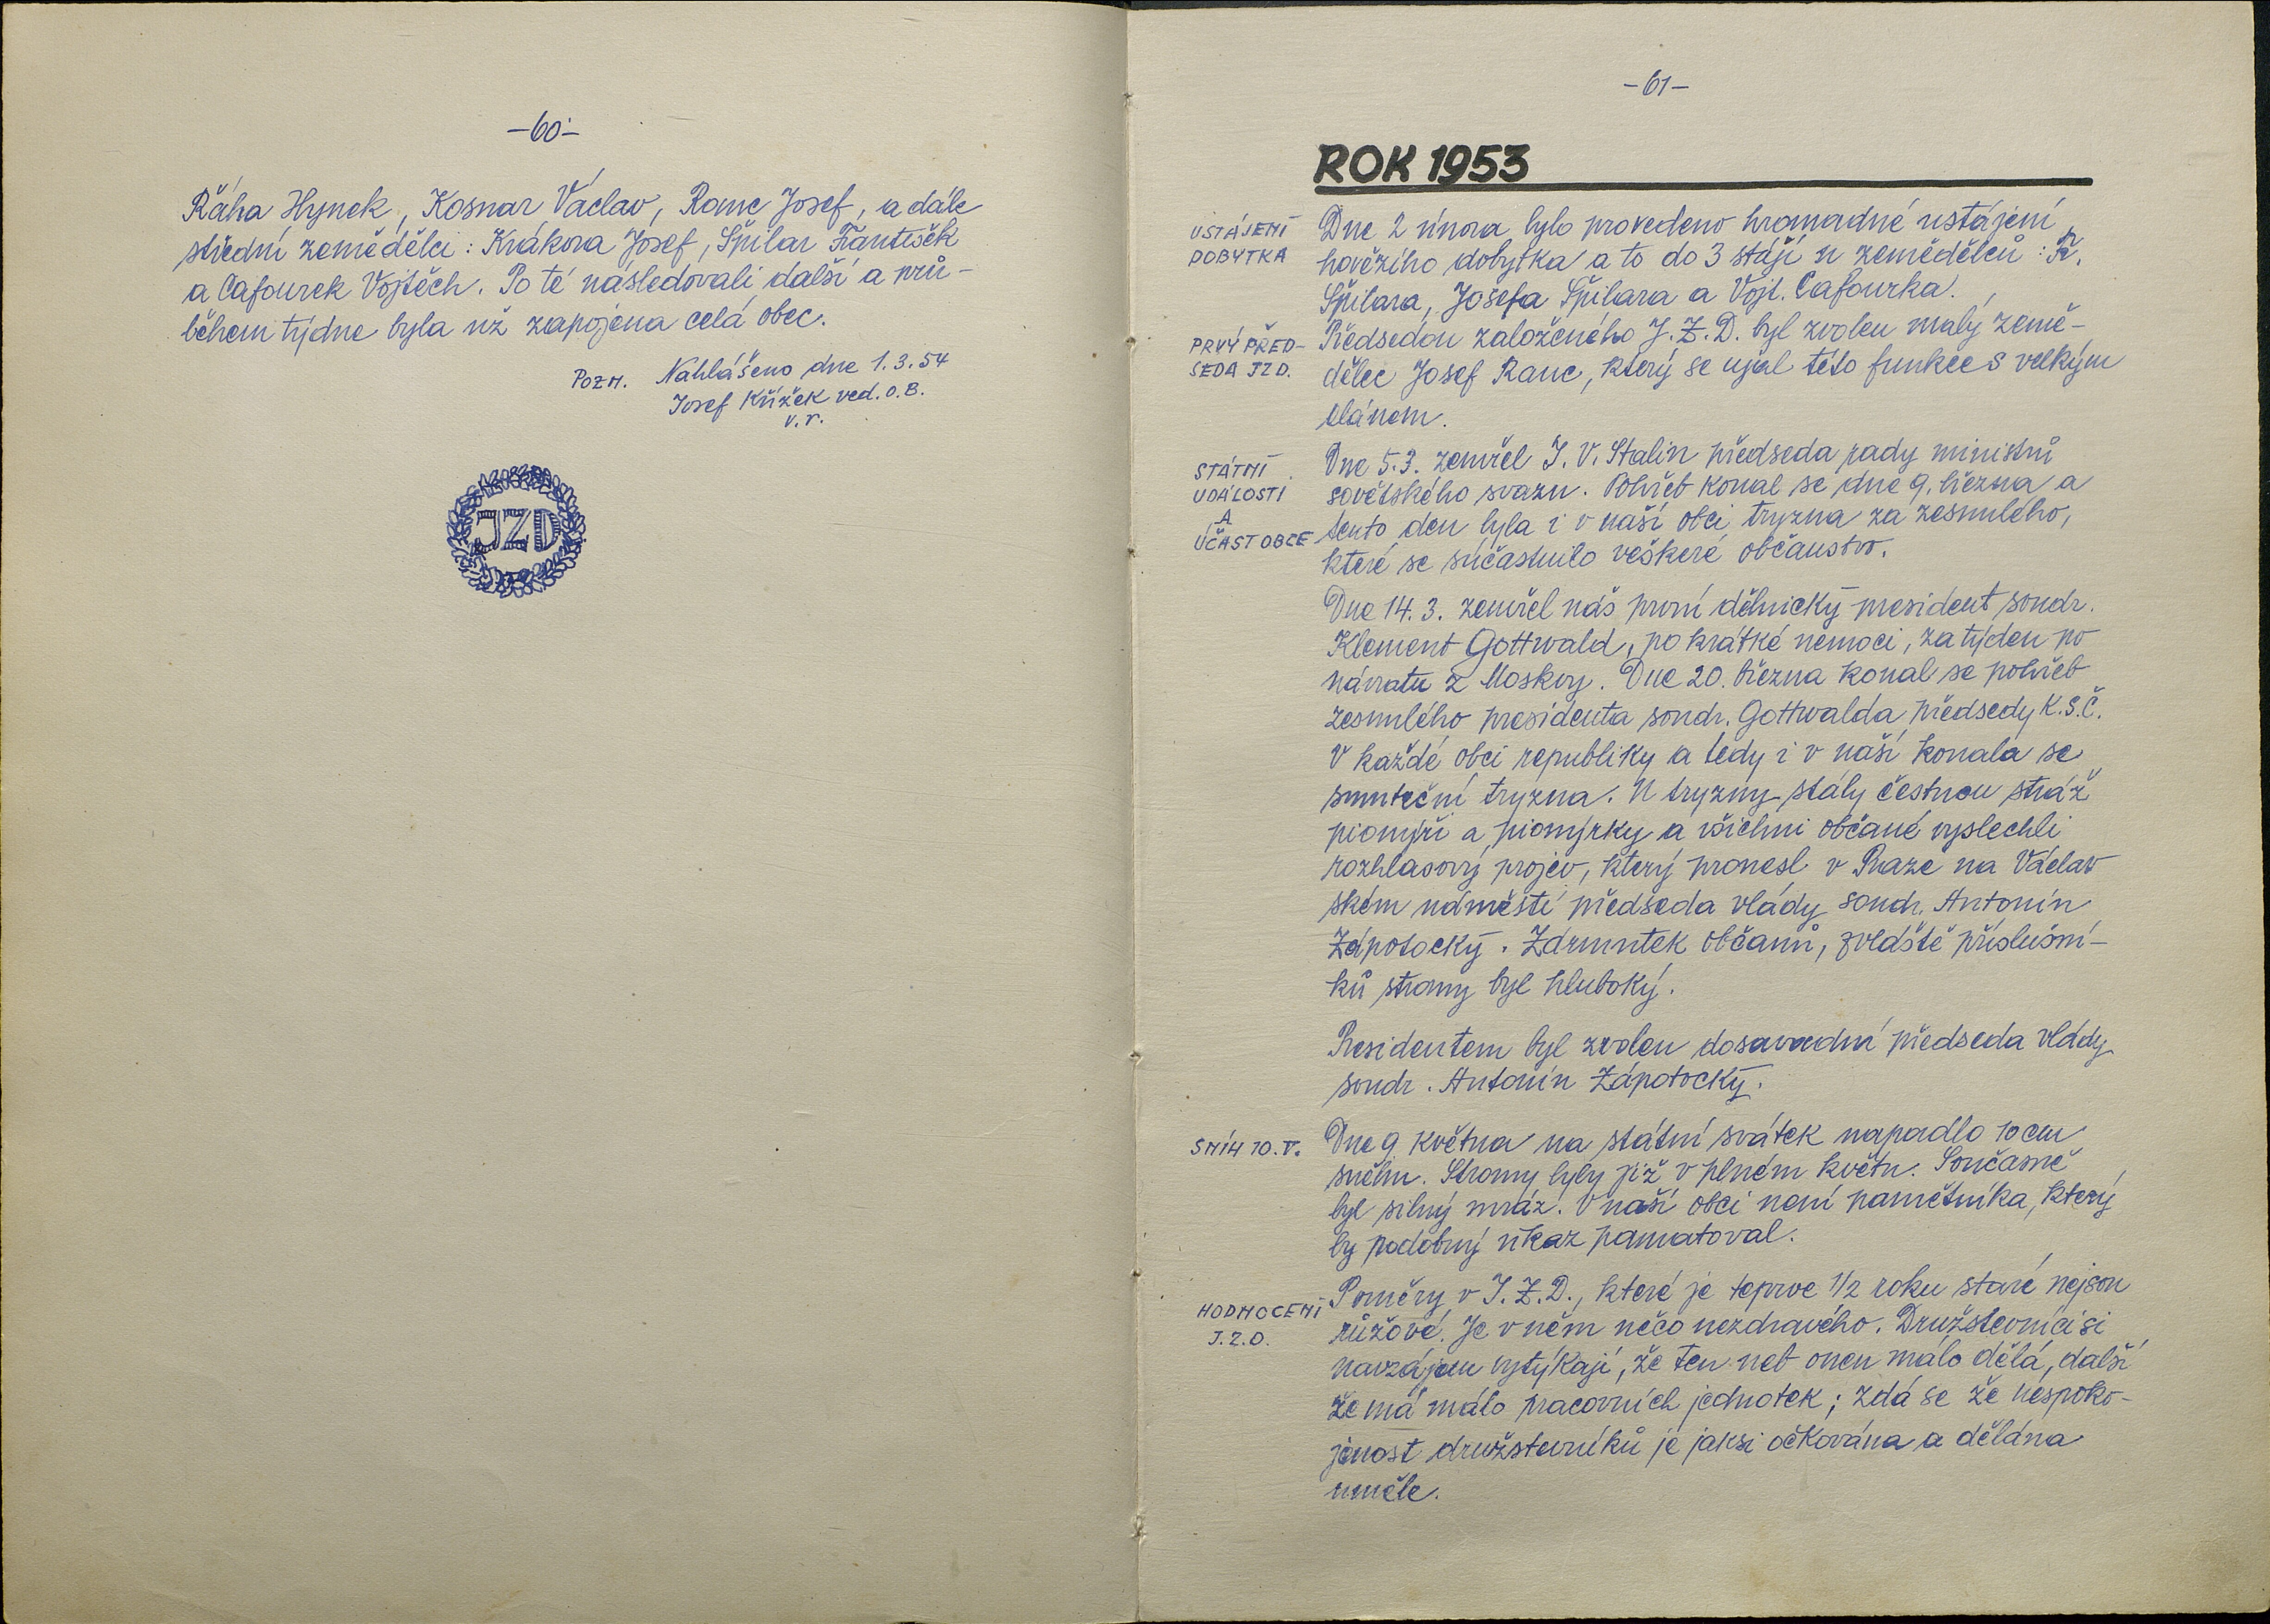 -60-
Řáha Hynek, Kosnar Václav, Ranc Josef, a dále
střední zemědělci: Krákora Josef, Špilar František
a Cafourek Vojtěch. Po té následovali další a prů-
během týdne byla už zapojena celá obec.
POZN. Nahlášeno dne 1.3.54
Josef Křížek ved. O.B.
v.r.
JZD
-61-
ROK 1953
USTÁJENÍ
DOBYTKA
Dne 2 února bylo provedeno hromadné ustájení
hovězího dobytka a to do 3 stájí u zemědělců: Fr.
Špilara, Josefa Špilara a Vojt. Cafourka.
PRVÝ PŘED-
SEDA JZD.
Předsedou založeného J.Z.D. byl zvolen malý země-
dělec Josef Ranc, který se ujal této funkce s velkým
elánem.
STÁTNÍ
UDÁLOSTI
A
ÚČAST OBCE
Dne 5.3. zemřel J. V. Stalin předseda rady ministrů
sovětského svazu. Pohřeb konal se dne 9. března a
tento den byla i v naší obci tryzna za zesnulého,
které se súčastnilo veškeré občanstvo.
Dne 14.3. zemřel náš první dělnický president soudr.
Klement Gottwald, po krátké nemoci, za týden po
návratu z Moskvy. Dne 20. března konal se pohřeb
zesnulého presidenta soudr. Gottwalda předsedy K.S.Č.
V každé obci republiky a tedy i v naší konala se
smuteční tryzna. U tryzny stály čestnou stráž
pionýři a pionýrky a všichni občané vyslechli
rozhlasový projev, který pronesl v Praze na Václav
ském náměstí předseda vlády soudr. Antonín
Zápotocký. Zármutek občanů, zvláště příslušní-
ků strany byl hluboký.
Presidentem byl zvolen dosavadní předseda vlády
soudr. Antonín Zápotocký.
SNÍH 10.V.
Dne 9 května na státní svátek napadlo 10 cm
sněhu. Stromy byly již v plném květu. Současně
byl silný mráz. V naší obci není pamětníka, který
by podobný úkaz pamatoval.
HODNOCENÍ
J.Z.D.
Poměry v J.Z.D., které je teprve 1/2 roku staré nejsou
růžové. Je v něm něco nezdravého. Družstevníci si
navzájem vytýkají, že ten neb onen málo dělá, další
že má málo pracovních jednotek; zdá se že nespoko-
jenost družstevníků je jaksi očkována a dělána
uměle.